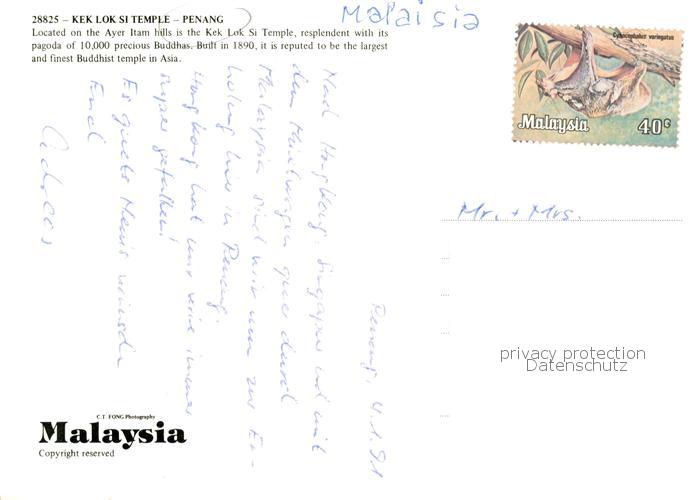 28825 – KEK LOK SI TEMPLE – PENANG
Located on the Ayer Itam hills is the Kek Lok Si Temple, resplendent with its
pagoda of 10,000 precious Buddhas. Built in 1890, it is reputed to be the largest
and finest Buddhist temple in Asia.
Malaisia
Cynocephalus variegatus
Malaysia 40c
Mr. + Mrs.
privacy protection
Datenschutz
Penang, 4.1.91
Nach Hongkong, Singapur und mit
dem Mietwagen quer durch
Malaysia sind wir nun zur Er-
holung hier in Penang.
Hongkong hat uns wie immer
super gefallen!
Es guets Neus wünscht
Euch
C.T. FONG Photography
Malaysia
Copyright reserved